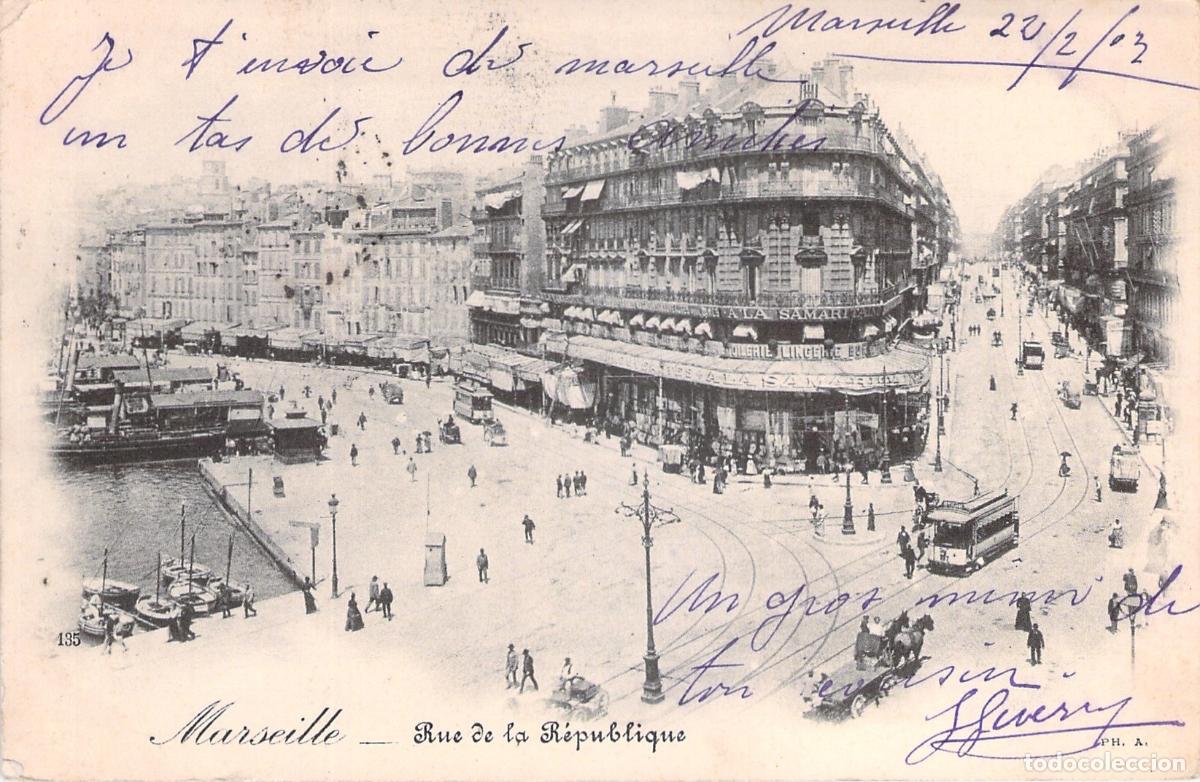 Marseille 22/2/03
Je t'envoie de marseille
un tas de bonnes
A LA SAMARITA
LINGERIE
A LA SAMARI
Un gros mimi de
ton cousin
135
Marseille — Rue de la République
PH. A.
todocoleccion